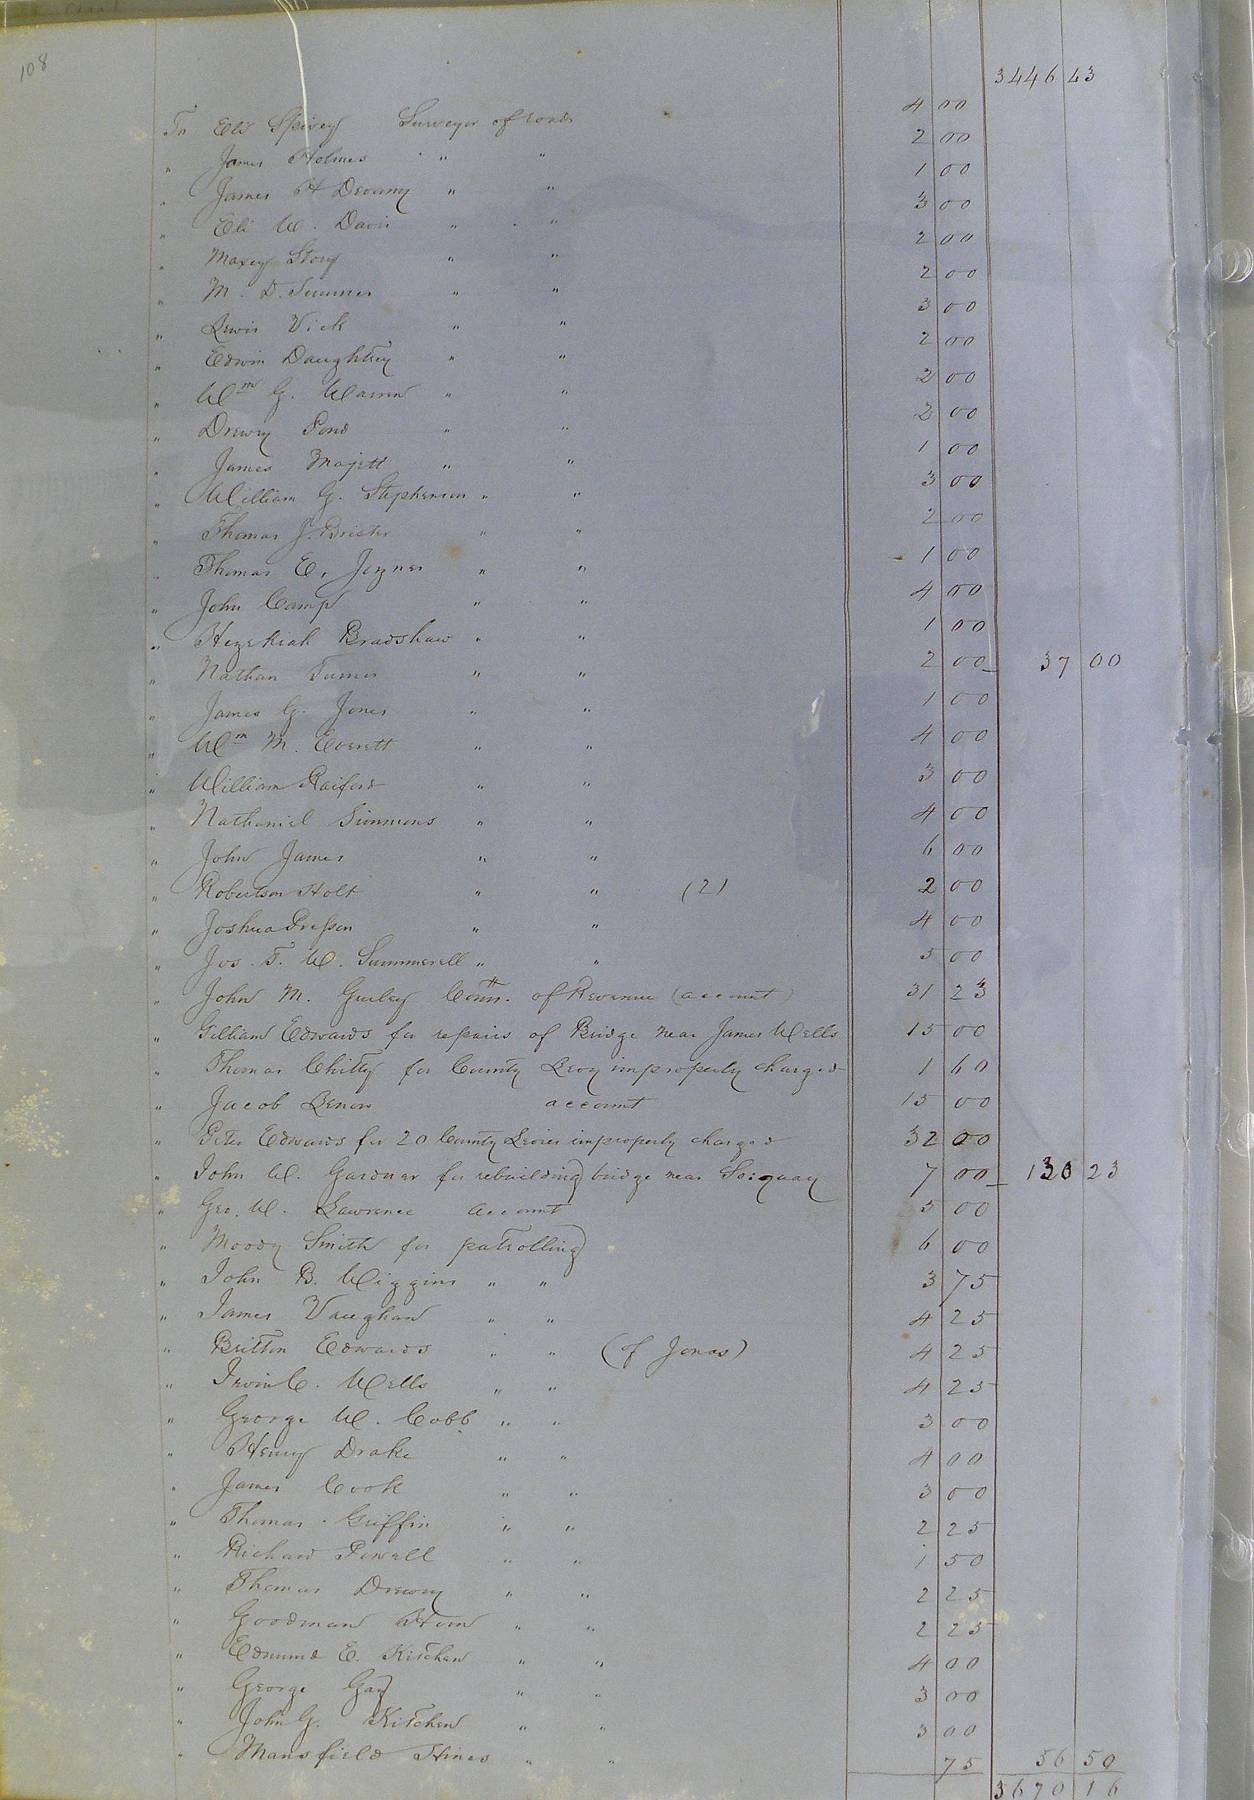 108
3446 43
To Eli Spivey Surveyor of roads 4 00
" James Holmes " " 2 00
" James H Devany " " 1 00
" Eli W. Davis " " 3 00
" Maxey Story " " 2 00
" M. D. Sumner " " 2 00
" Lewis Vick " " 3 00
" Edwin Daughtrey " " 2 00
" Wm G. Warren " " 2 00
" Drewry Pond " " 2 00
" James Majett " " 1 00
" William G. Stephenson " " 3 00
" Thomas J. Brister " " 2 00
" Thomas E. Joyner " " 1 00
" John Camp " " 4 00
" Hezekiah Bradshaw " " 1 00
" Nathan Turner " " 2 00 37 00
" James G. Jones " " 1 00
" Wm M. Everett " " 4 00
" William Raiford " " 3 00
" Nathaniel Simmons " " 4 00
" John James " " 6 00
" Robertson Holt " " (2) 2 00
" Joshua Presson " " 4 00
" Jos. T. W. Summerell " " 5 00
" John M. Gurley Comr. of Revenue (account) 31 23
" Gilliam Edwards for repairs of Bridge near James Wells 15 00
" Thomas Chitty for County Levy improperly charged 1 60
" Jacob Lenow account 15 00
" Peter Edwards for 20 County Levies improperly charged 32 00
" John W. Gardner for rebuilding bridge near 7 00 130 23
" Geo. W. Lawrence account 5 00
" Moody Smith for patrolling 6 00
" John B. Wiggins " " 3 75
" James Vaughan " " 4 25
" Britton Edwards " " (of Jonas) 4 25
" Irvin C. Wells " " 4 25
" George W. Cobb " " 3 00
" Henry Drake " " 4 00
" James Cook " " 3 00
" Thomas Griffin " " 2 25
" Richard Powell " " 1 50
" Thomas Drewry " " 2 25
" Goodman " " 2 25
" Edmund E. Kitchen " " 4 00
" George Gay " " 3 00
" John G. Kitchen " " 3 00
" Mansfield Hines " " 75 56 50
3670 16